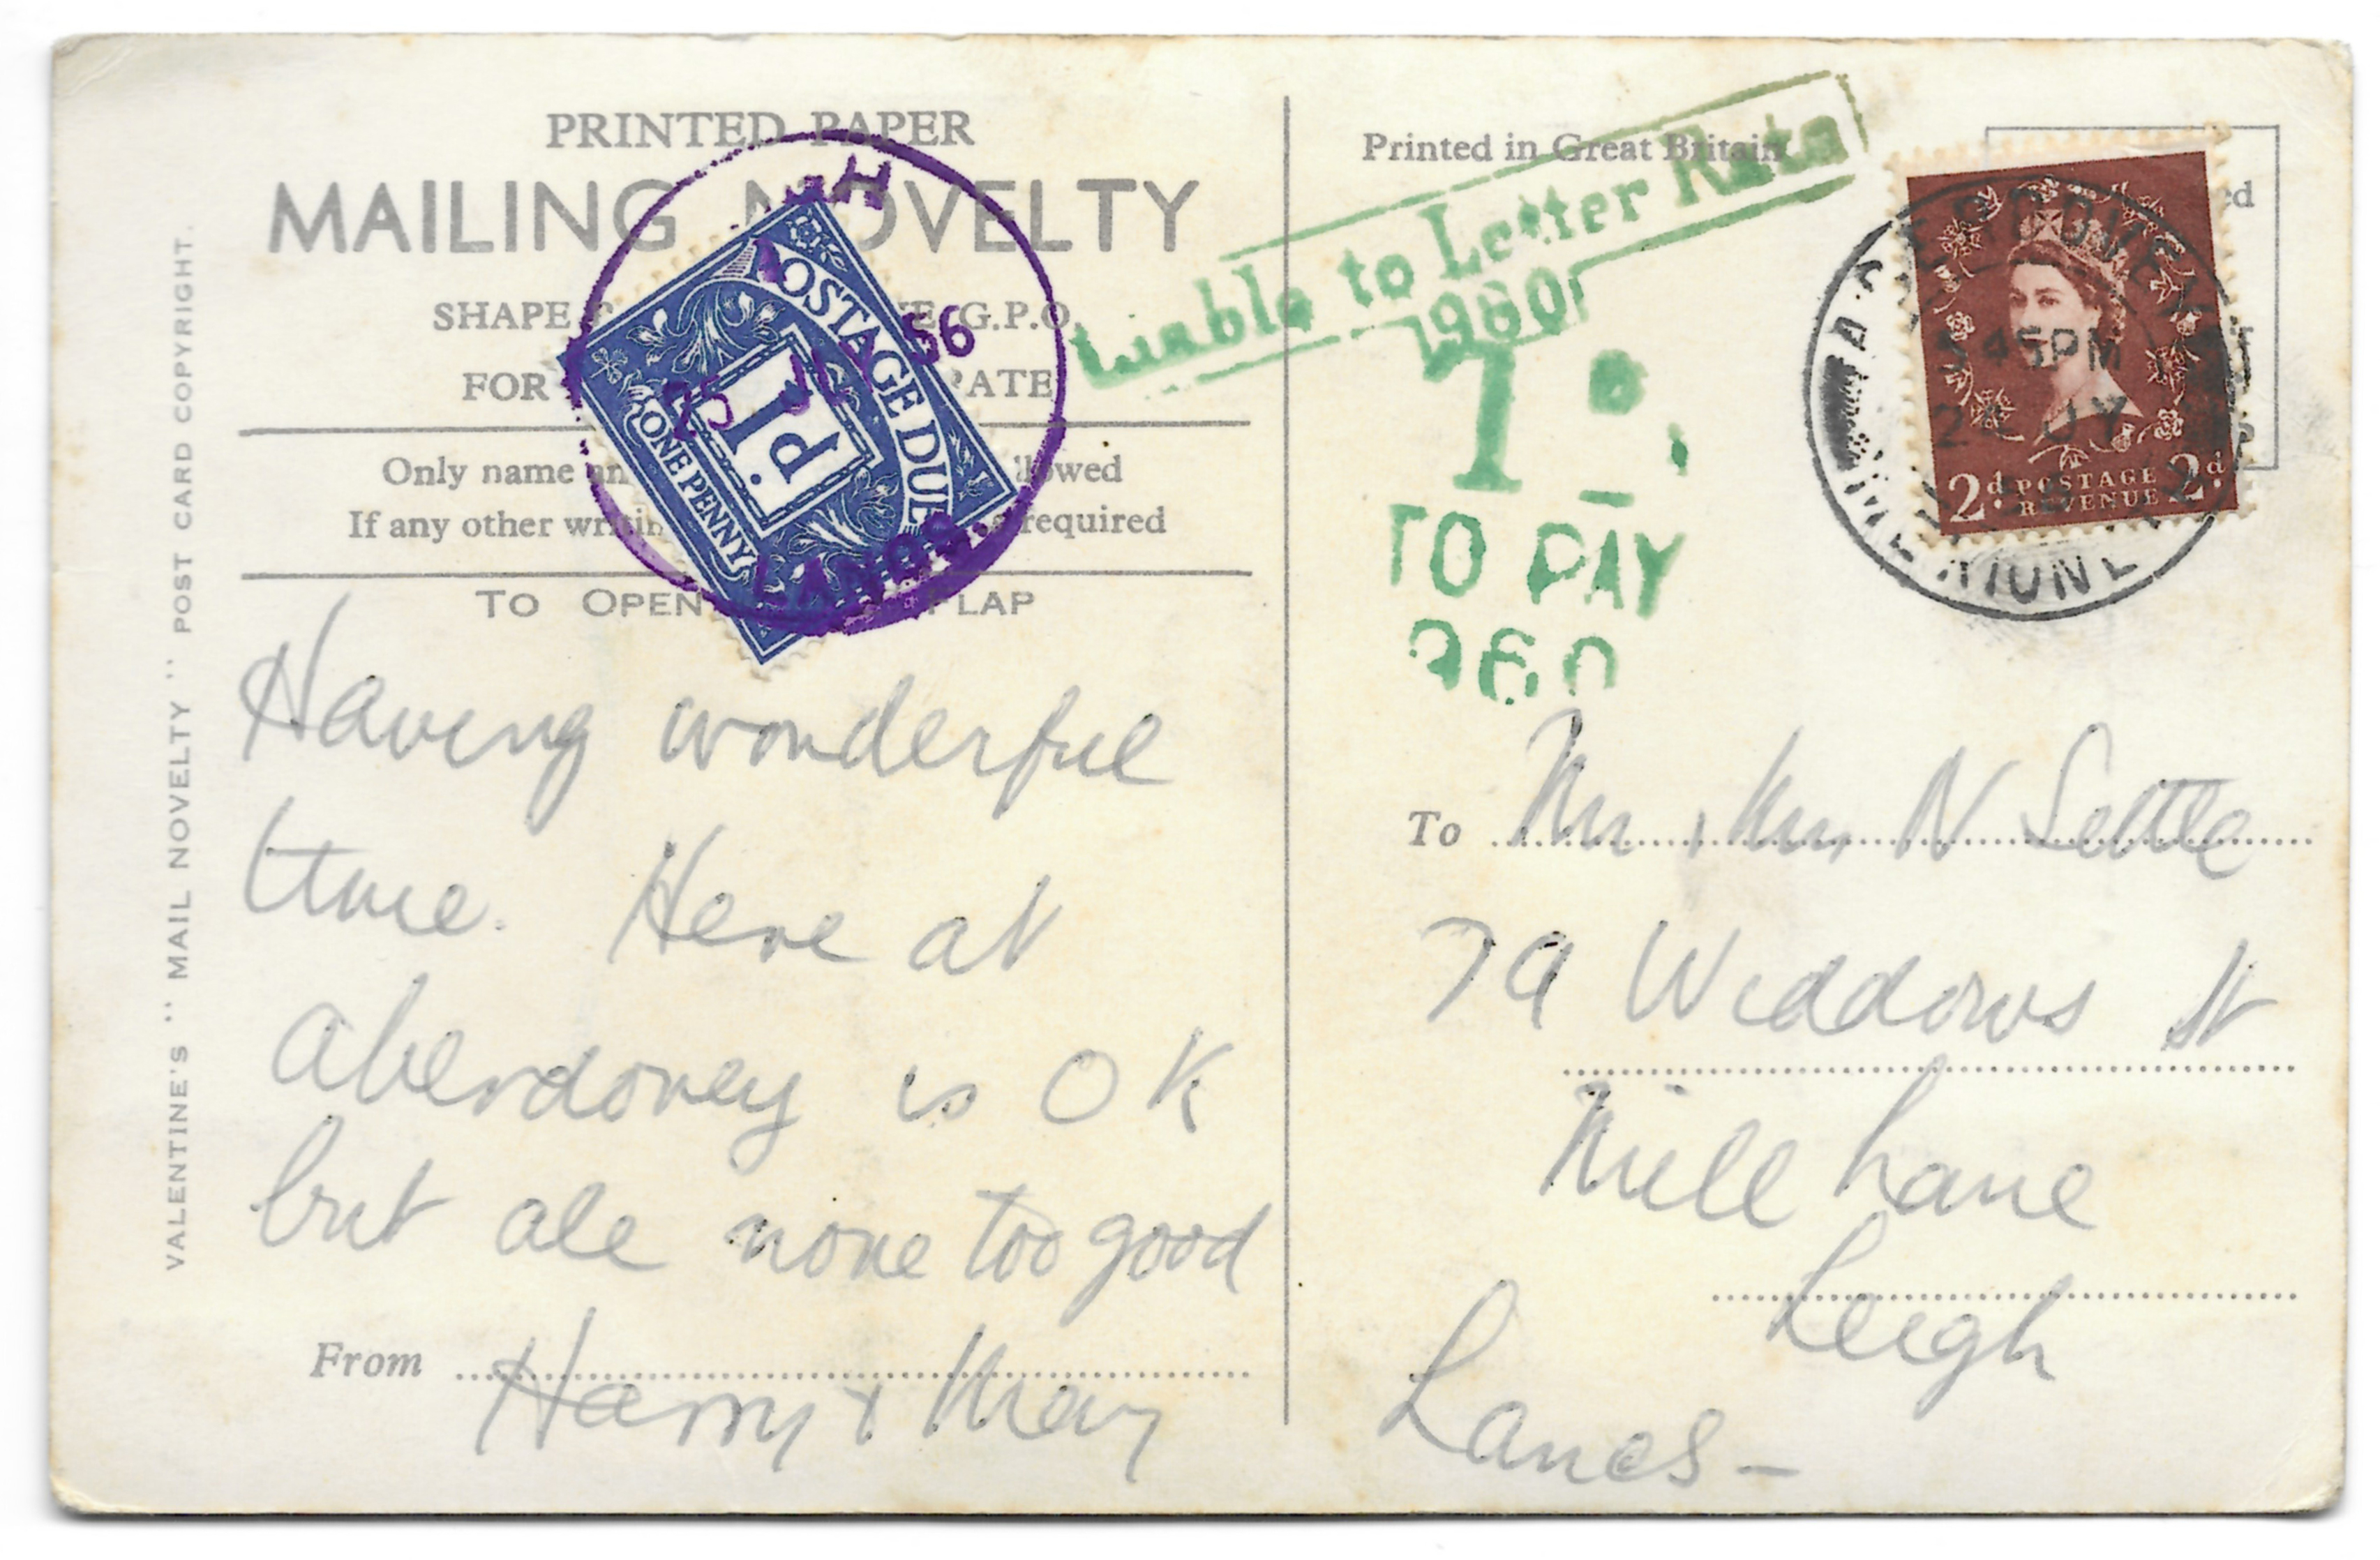 PRINTED PAPER
MAILING NOVELTY
SHAPE G.P.O.
FOR RATE
Only name allowed
If any other writing required
TO OPEN FLAP
VALENTINE'S "MAIL NOVELTY" POST CARD COPYRIGHT.
H
25 JY 56
LANCS.
POSTAGE DUE
1d.
ONE PENNY
Having wonderful
time. Here at
Aberdovey is OK
but ale none too good
From Harry & May
Printed in Great Britain
Liable to Letter Rate
960
1D.
TO PAY
960
ABERDOVEY
5 45 PM
24 JY
MERIONETH
2d POSTAGE 2d
REVENUE
To Mr & Mrs N Settle
79 Widdows St
Mill Lane
Leigh
Lancs-